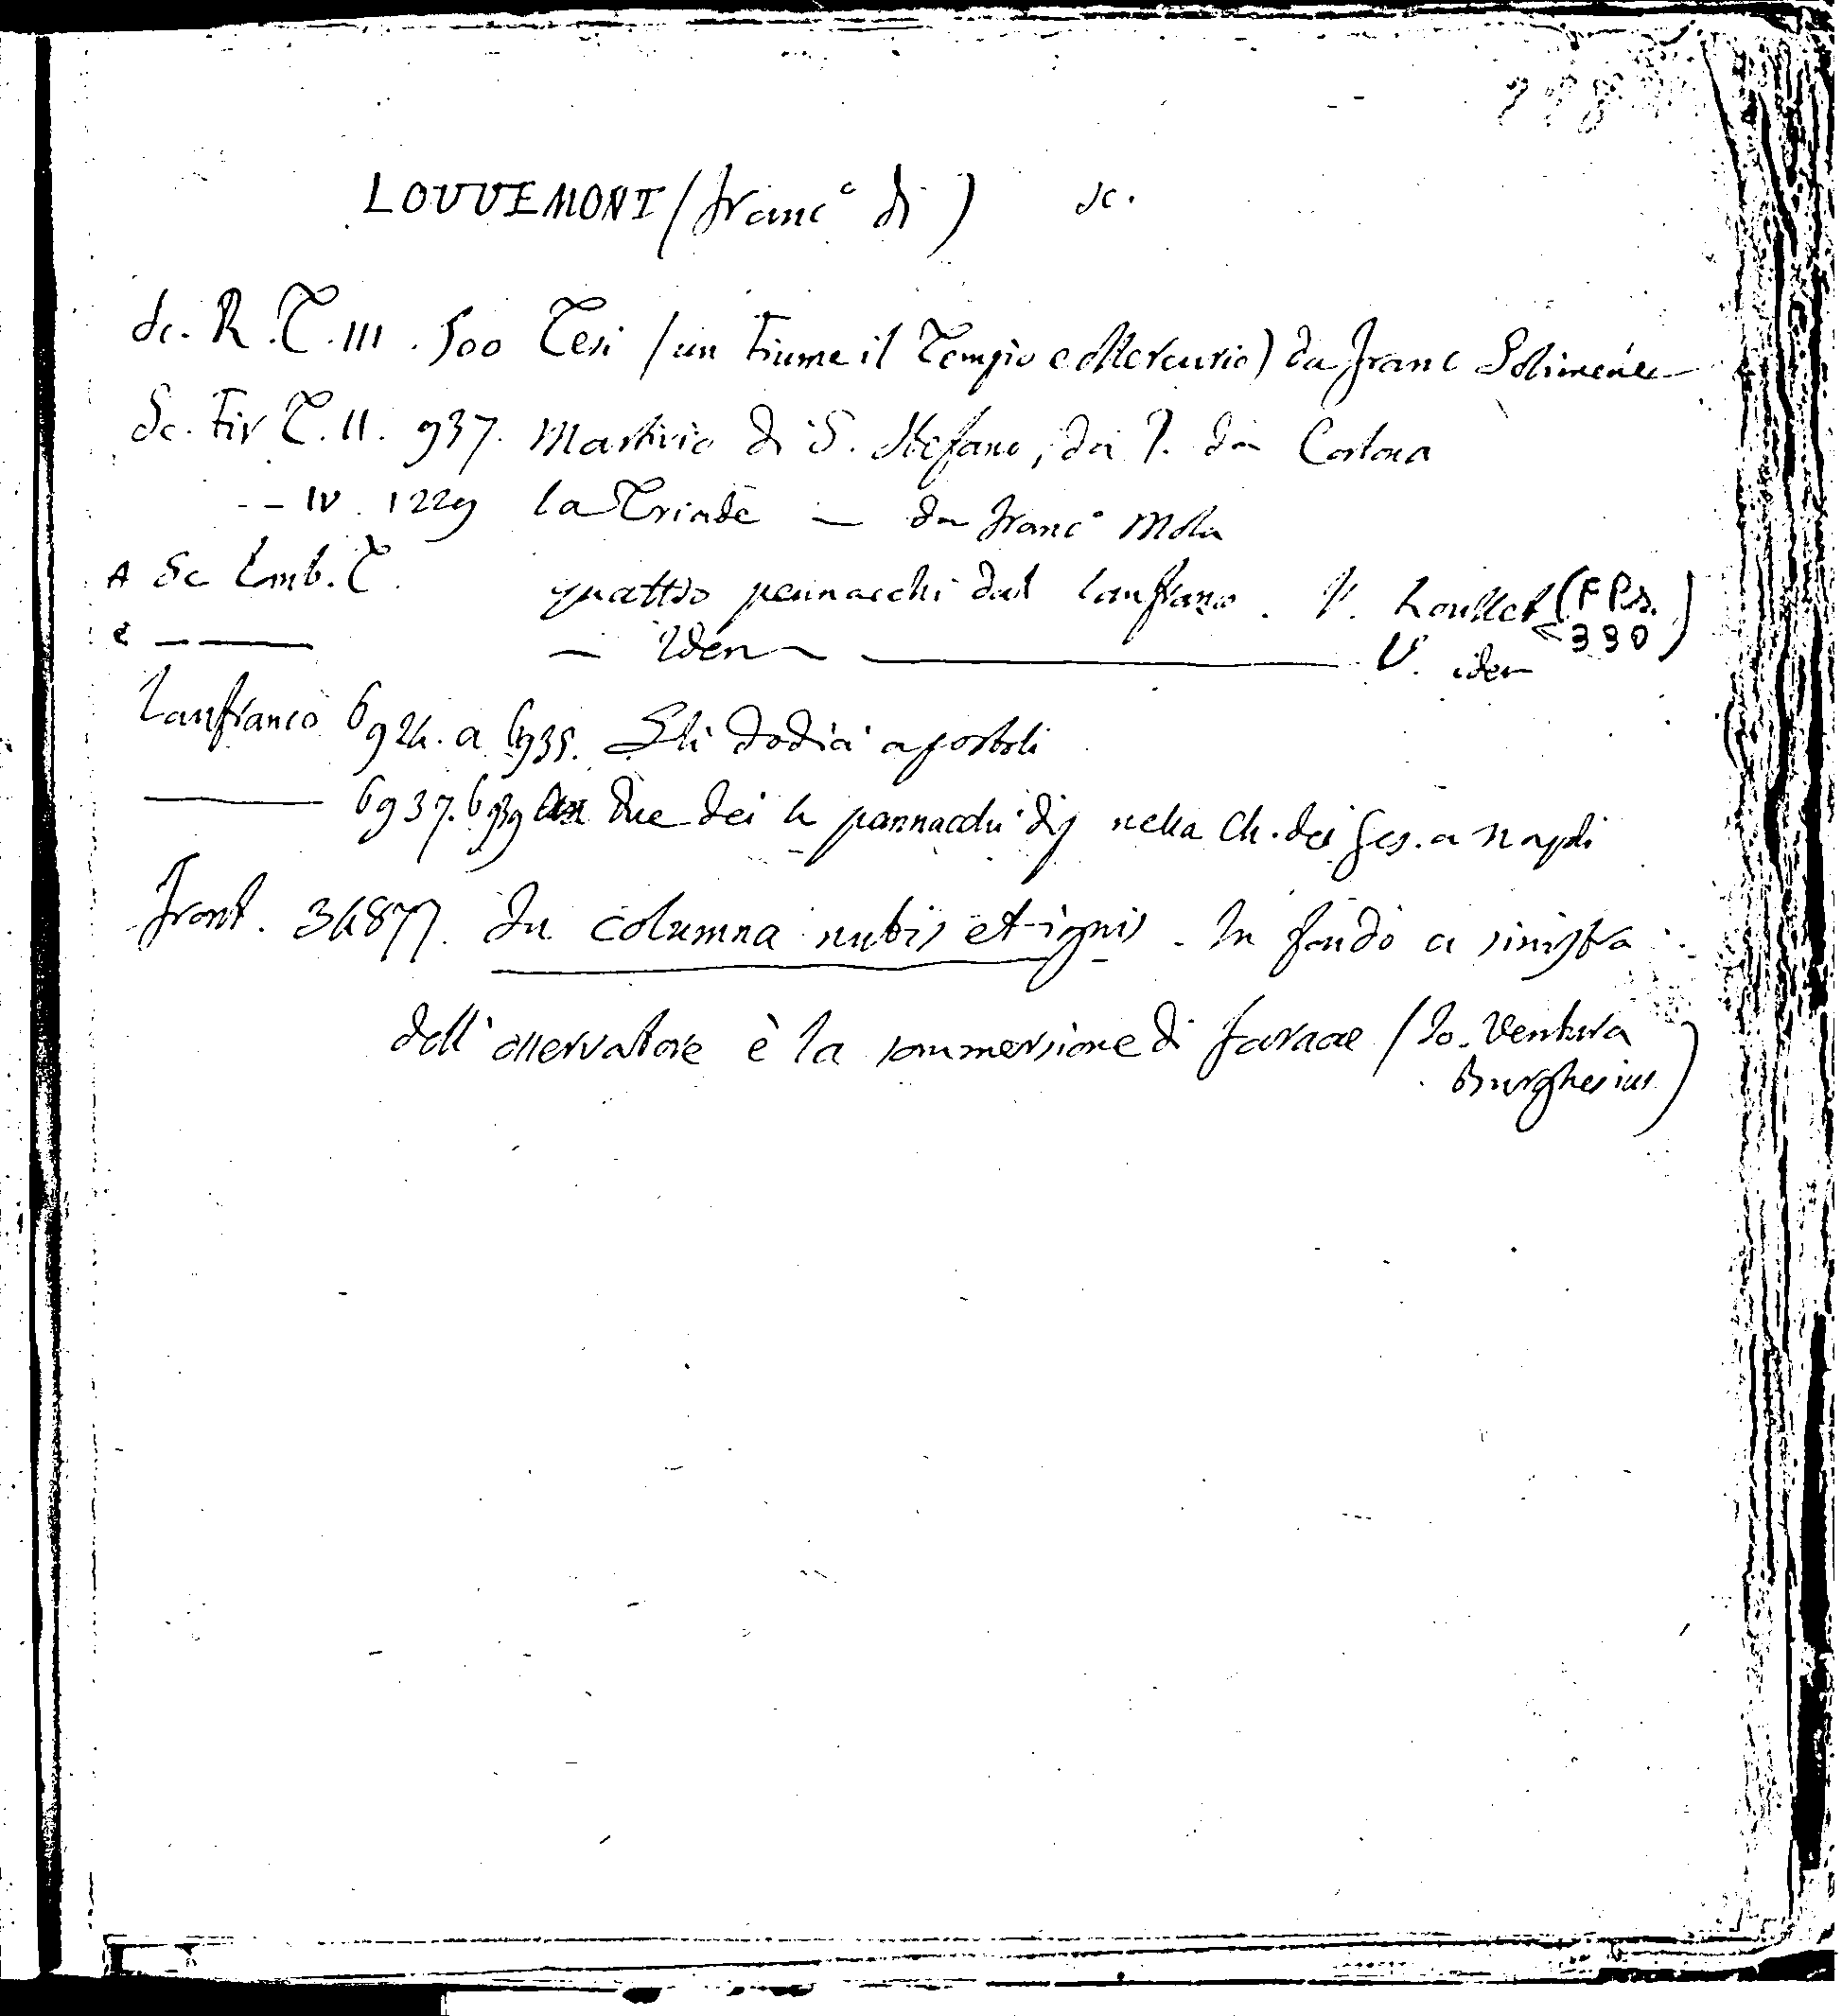 LOUVEMONT (Franc° di) sc.
Sc. R. T. III. 500 Tesi (un Fiume il Tempio e Mercurio) da Franc Solimene
Sc. Fir T. II. 937. Martirio di S. Stefano, da P. da Cortona
-- IV. 1229 la Trinità — da Franc° Mola
A Sc Lomb. T. quattro pennacchi dal Lanfranco. V. Loullet (F P.s. 330)
e — — — Idem — V. idem
Lanfranco 6924. a 6935. Gli dodici apostoli
— 6937. 6939 Due dei 4 pennacchi dip nella Ch. dei Ges. a Napoli
Front. 34877. In columna nubis et ignis. In fondo a sinistra
dell'osservatore è la sommersione di Faraone (Io. Ventura
Burghesius)